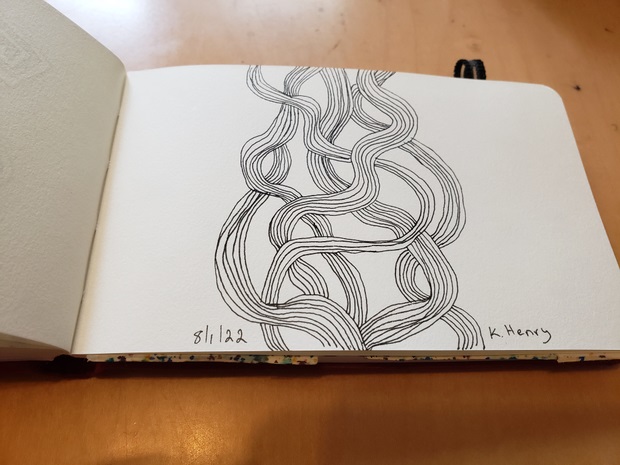 8/1/22
K. Henry